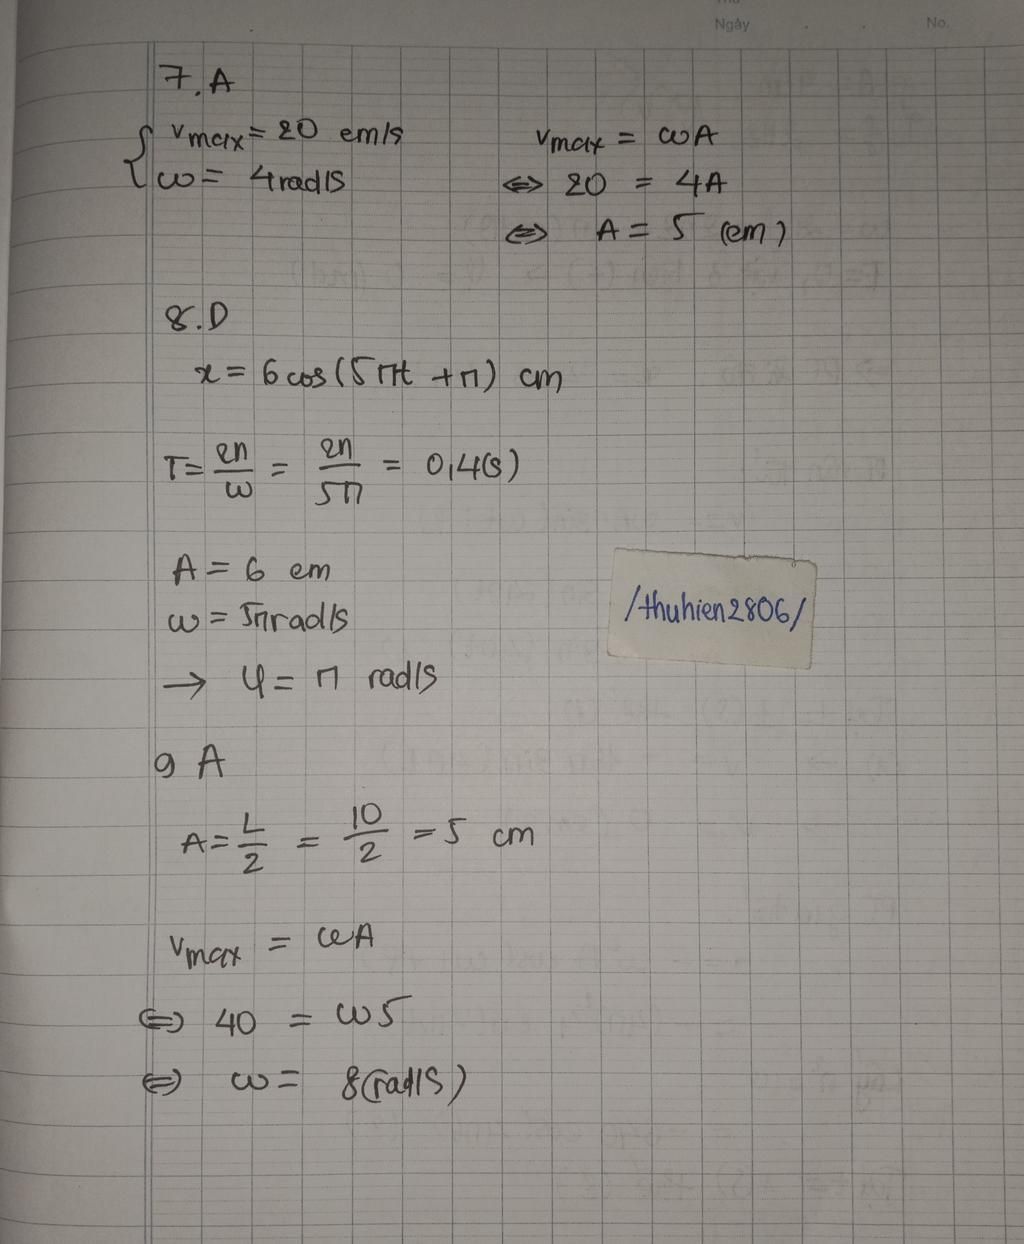 Ngày . . No.
7.A
{ vmax = 20 cm/s
ω = 4rad/s
vmax = ωA
⇔ 20 = 4A
⇔ A = 5 (cm)
8.D
x = 6 cos(5πt + π) cm
T = 2π/ω = 2π/5π = 0,4(s)
A = 6 cm
ω = 5π rad/s
→ φ = π rad/s
/thuhien2806/
9 A
A = L/2 = 10/2 = 5 cm
vmax = ωA
⇔ 40 = ω5
⇔ ω = 8(rad/s)